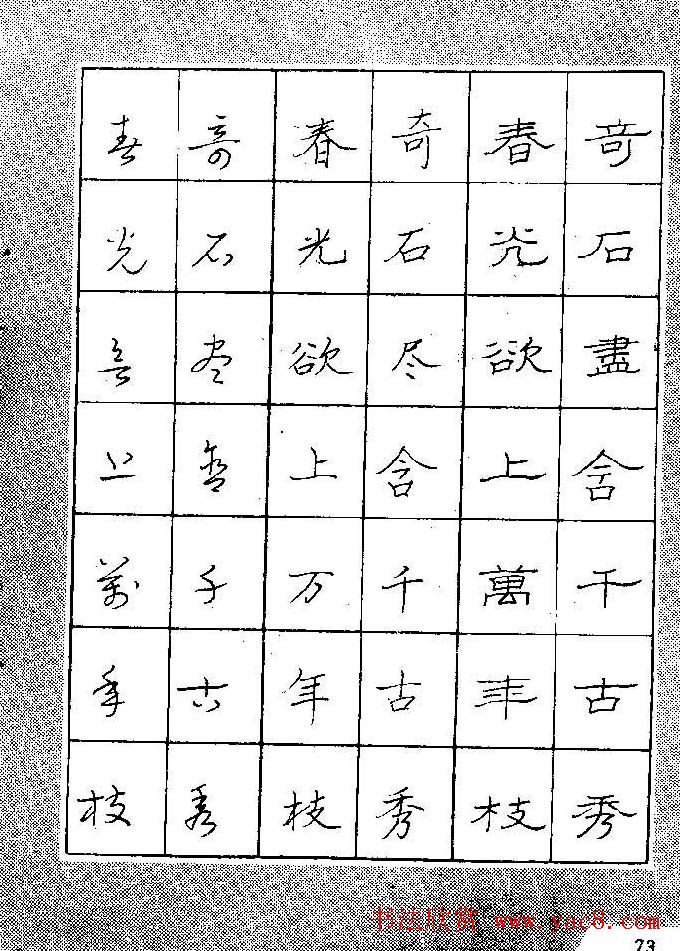 奇石盡含千古秀
春光欲上萬年枝
奇石尽含千古秀
春光欲上万年枝
奇石尽含千古秀
春光欲上萬年枝
书法欣赏 www.yac8.com
73